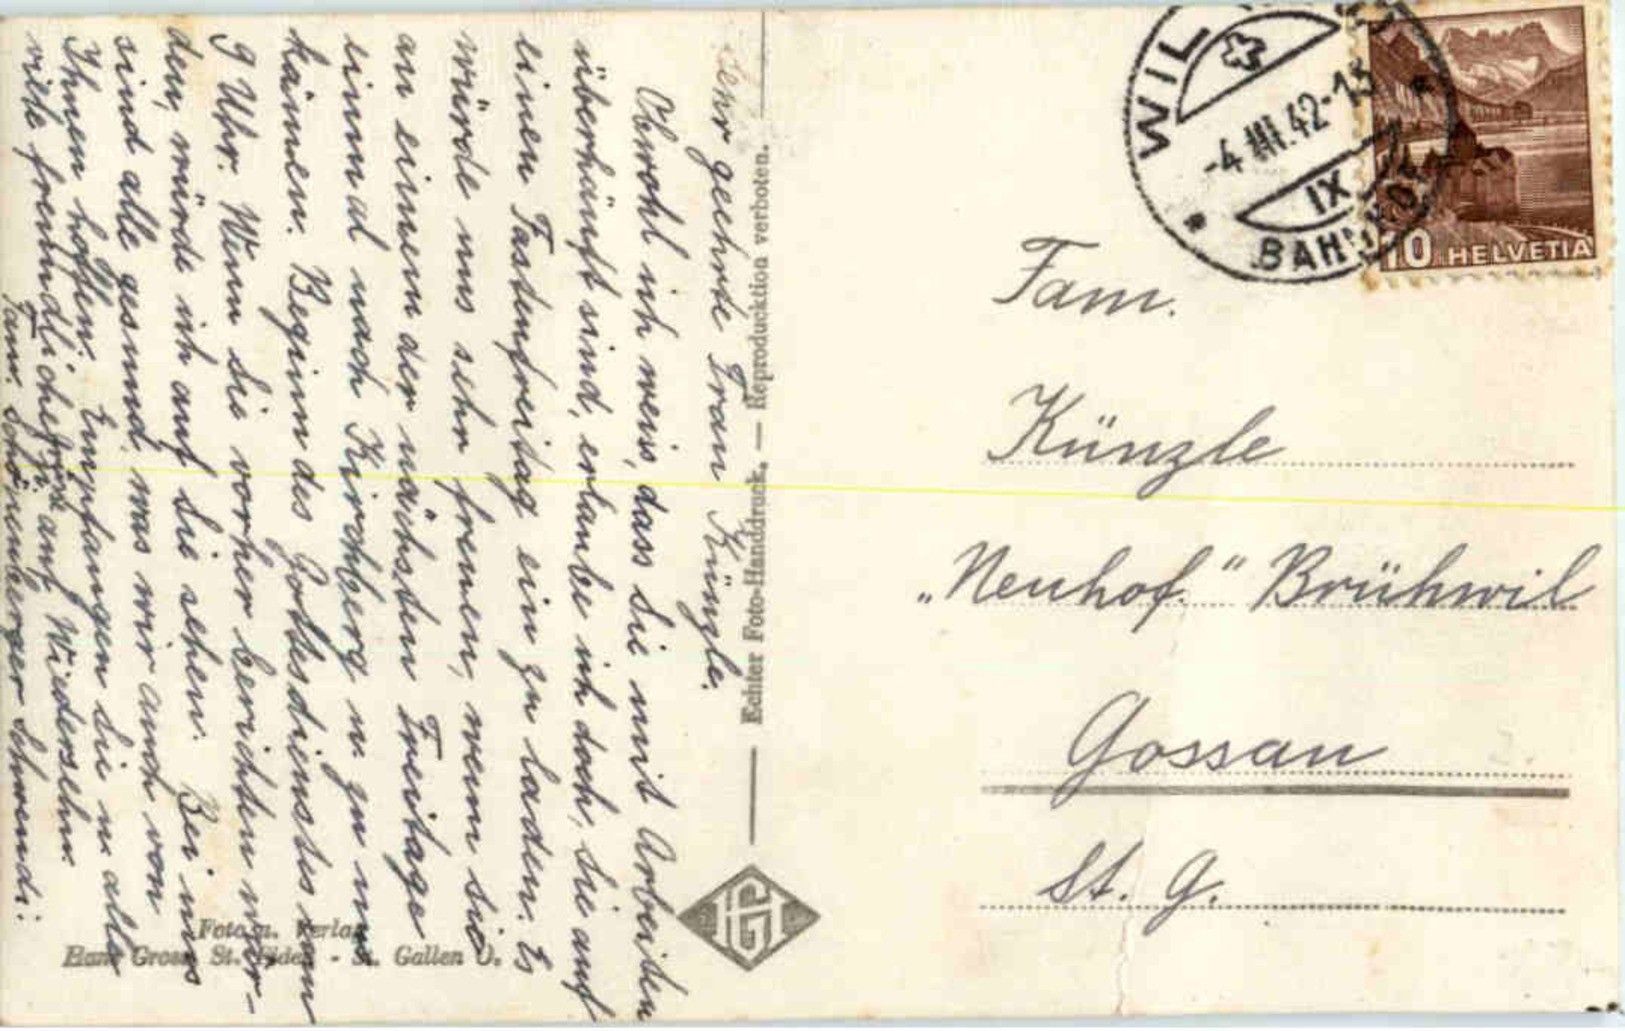 Sehr geehrte Frau Künzle.
Obwohl ich weiss, dass Sie mit Arbeiten
überhäuft sind, erlaube ich doch, Sie auf
einen Fastenfreitag ein zu laden. Es
würde uns sehr freuen, wenn Sie
an einem der nächsten Freitage
einmal nach Kirchberg u. zu uns
kämen. Beginn des Gottesdienstes um
9 Uhr. Wenn Sie vorher berichten wür-
den, würde ich auf Sie sehen. Bei uns
sind alle gesund, was wir auch von
Ihnen hoffen. Empfangen Sie u. alle
viele freundliche Grüsse u. auf Wiedersehn.
Fam. Schönenberger Schwendi.
Echter Foto-Handdruck. — Reproduktion verboten.
Foto u. Verlag
Hans Gross, St. Fiden - St. Gallen O.
HG
WIL
-4.III.42-15
IX
BAHNHOF
10 HELVETIA
Fam.
Künzle
„Neuhof." Brühwil
Gossau
St. G.